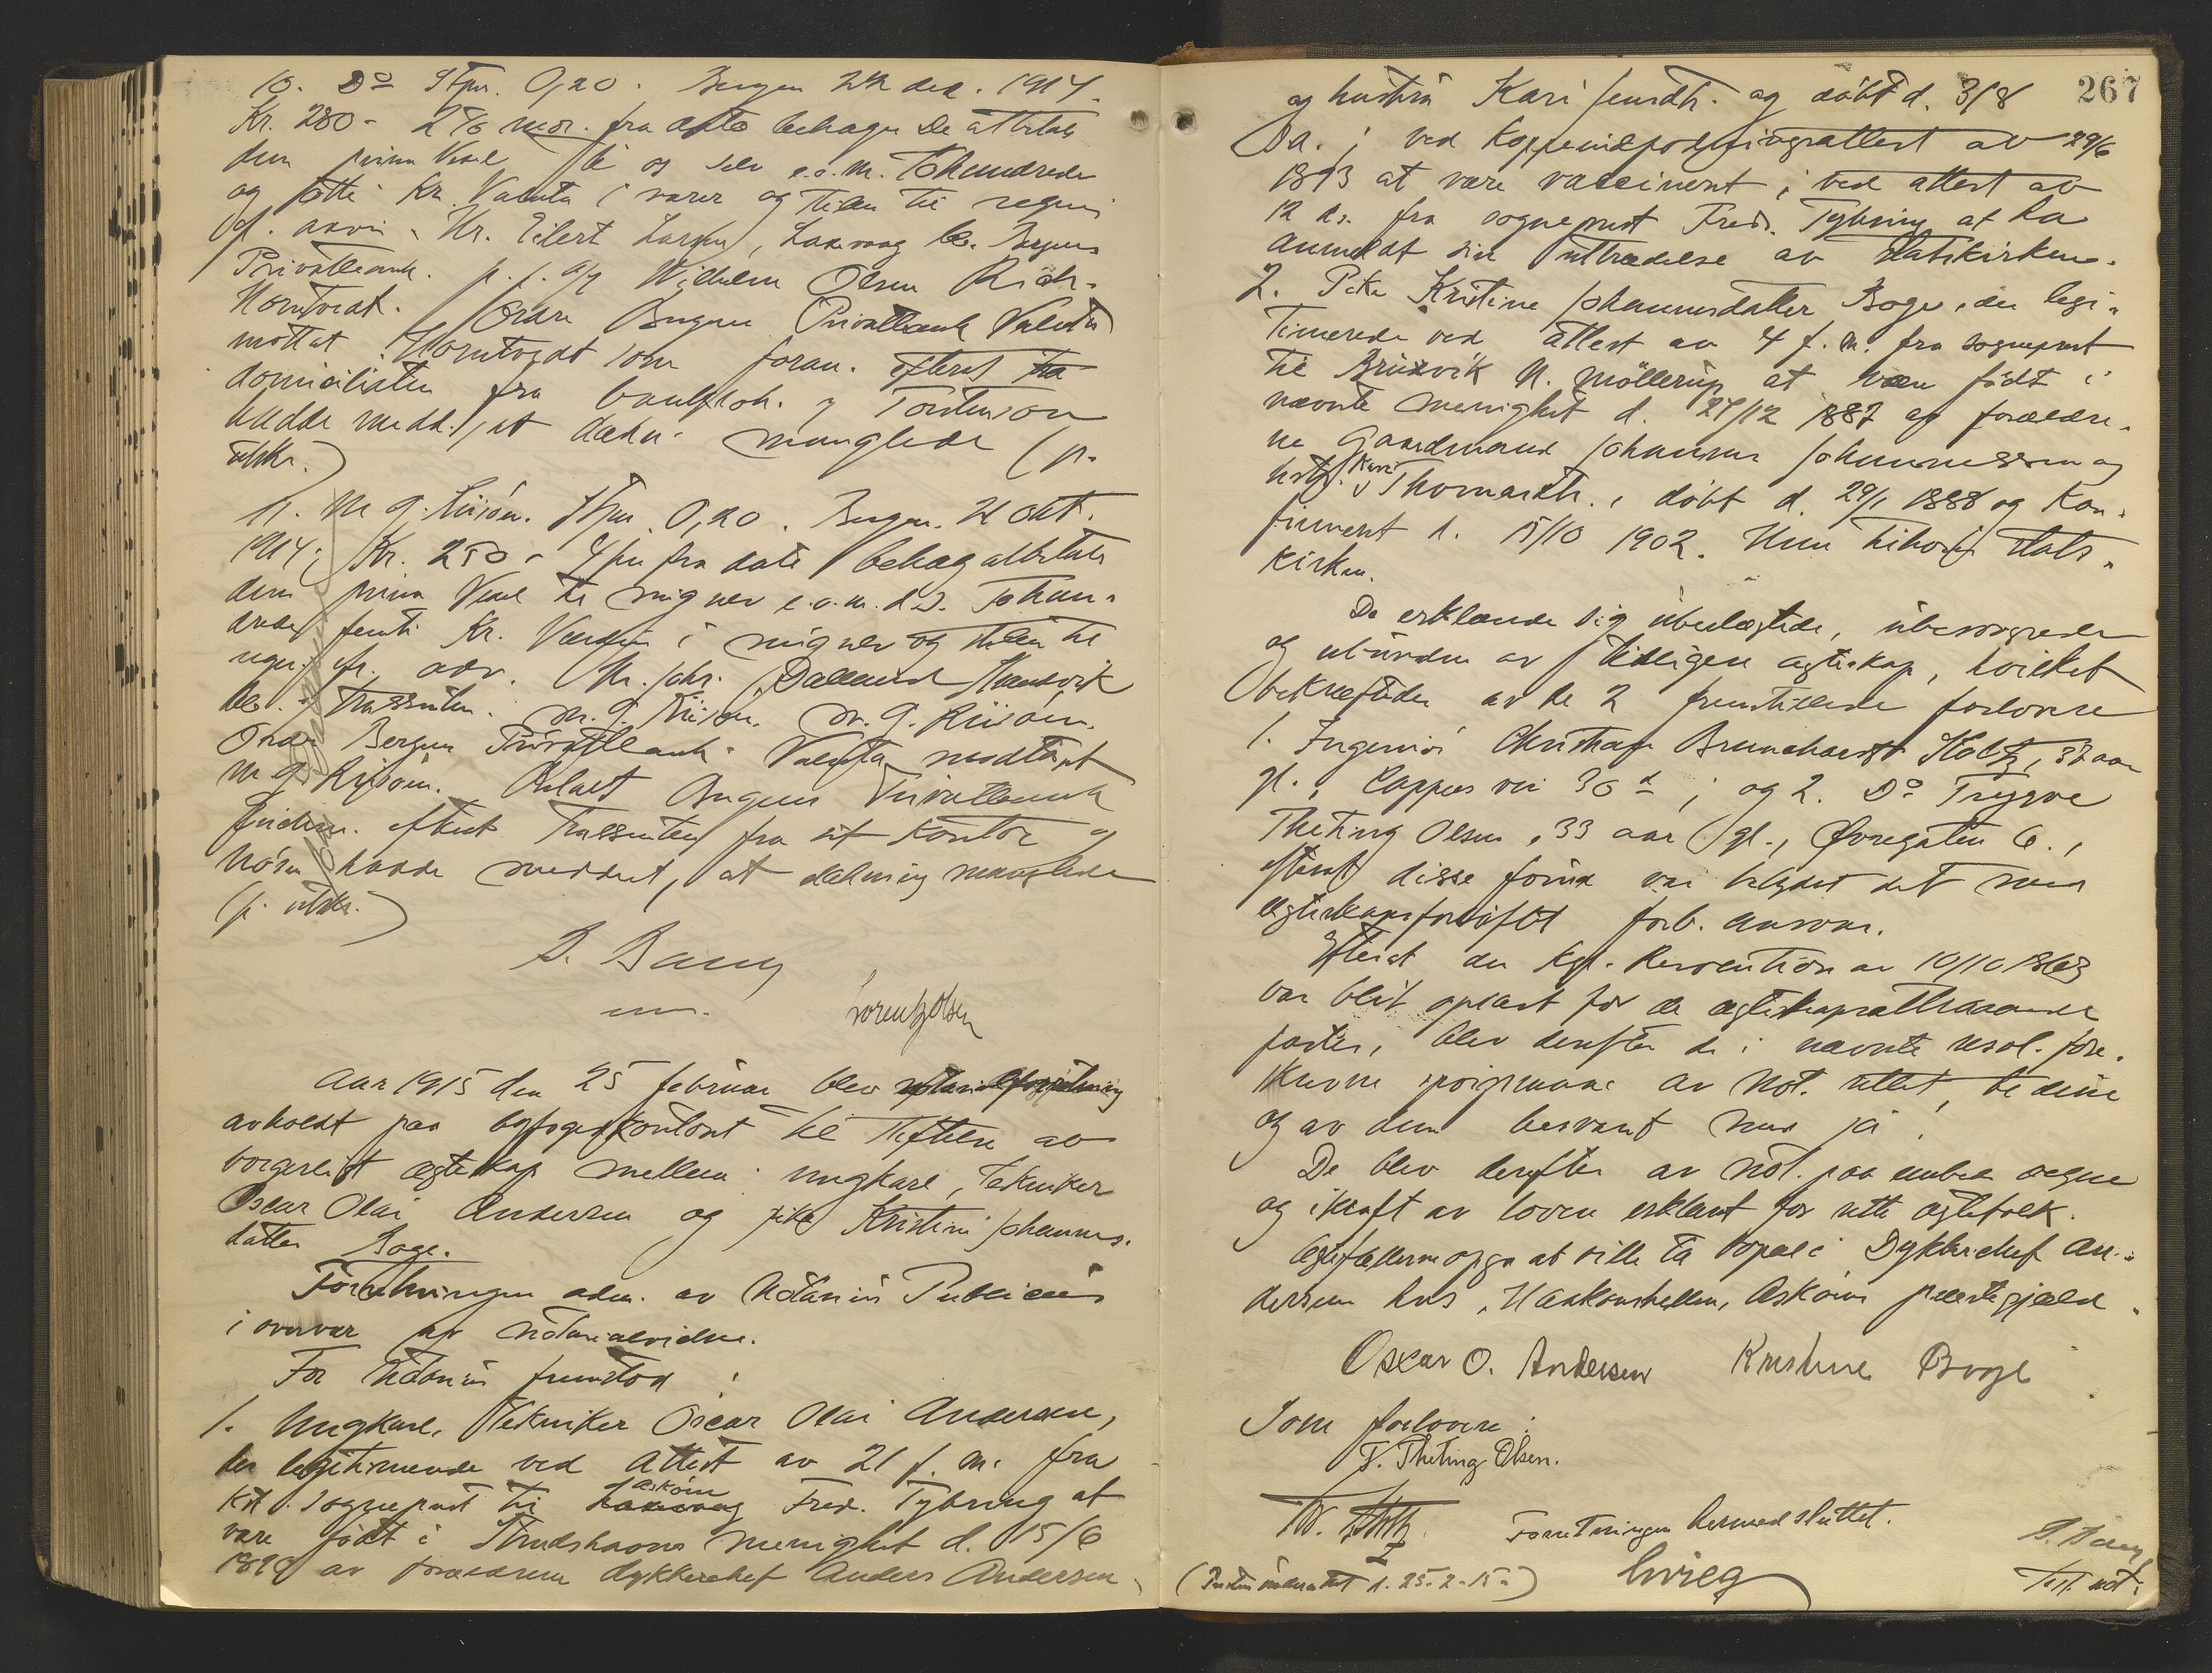 10. Do Stpm. 0,20. Bergen 22 dec. 1914.
Kr. 280 - 2 mdr. fra dato behager De at betale
denne prima Vexel til os selv e.o. m. Tohundrede
og otti Kr. Valuta i varer og stilles til regning
Hr. Eilert Larsen, Laxevaag bet. Bergens
Privatbank. p. p. a/s Wilhelm Olsen
Ordre Bergens Privatbank Valuta
mottat som foran. efterat
domicilisten fra og Torstenson
hadde medd., at dækn. manglede (p.
utskr.)
11. M. G. Riisøen. Stpm. 0,20. Bergen. 21 okt.
1914. Kr. 250 - 4 fra dato behag at betale
denne prima Vexel til mig selv e.o. m. d. s. Tohun-
drede femti Kr. Værdien i mig selv og stilles til
regn. Hr. Johs. Dalland
bet. Trassenten. M. G. Riisøen. M. G. Riisøen.
Ordre Bergens Privatbank. Valuta modtat
M. G. Riisøen. Betalt Bergens Privatbank
efterat Trassenten fra sit kontor og
hadde meddelt, at dækning manglede
(p. utskr.)
S. Bang
Lorentz Olsen
Aar 1915 den 25 februar blev notarialforretning
avholdt paa byfogedkontoret til stiftelse av
borgerligt egteskap mellem ungkarl, tekniker
Oscar Olai Andersen og pike Kristine Johannes-
datter Boge.
Forretningen adm. av Notarius Publicus
i overvær av notarialvidne.
For Notarius fremstod:
1. Ungkarl, Tekniker Oscar Olai Andersen,
der legitimerede ved Attest av 21 f. m. fra
kst. sogneprest til Askøen Fred. Tybring at
være født i menighet d. 15/6
av forældrene dykkerchef Anders Andersen
267
og hustru Kari Jensdtr. og døbt d. 3/8
s. a.; ved koppeindpodningsattest av 29/6
1893 at være vaccinert; ved attest av
12 ds. fra sogneprest Fred. Tybring at ha
anmeldt sin uttrædelse av statskirken.
2. Pike Kristine Johannesdatter Boge, der legi-
timerede ved attest av 4 f. m. fra sogneprest
til Bruvik N. Møllerup at være født i
nævnte menighet d. 27/12 1887 av forældre-
ne Gaardmand Johannes Johannessen og
hstr. Kari Thomasdtr., døbt d. 29/1 1888 og kon-
firmert d. 15/10 1902. Hun tilhører stats-
kirken.
De erklærede sig ubeslægtede, ubesvogrede
og ubundne av tidligere egteskap, hvilket
bekræftedes av de 2 fremstillede forlovere
1. Ingeniør Christian Brunchorst Holtz, 37 aar
gl., Cappes vei 36 d; og 2. Do Trygve
Theting Olsen, 33 aar gl., Øvregaten 6.,
efterat disse forud var betydet det med
egteskapsforløftet forb. ansvar.
Efterat den kgl. Resolution av 10/10 1863
var blit oplæst for de egteskapsattraaende
parter, blev derefter de i nævnte resol. fore-
skrevne spørgsmaal av Not. rettet til disse
og av dem besvart med ja.
De blev derefter av Not. paa embeds vegne
og i kraft av loven erklært for rette egtefolk.
Egtefællerne opgav at ville ta bopæl i Dykkerchef An-
dersens hus, Haakonshellen, Askøens prestegjæld.
Oscar O. Andersen Kristine Boge
Som forlovere:
T. Theting Olsen.
Forretningen hermed sluttet.
S. Bang
( d. 25-2-15.)